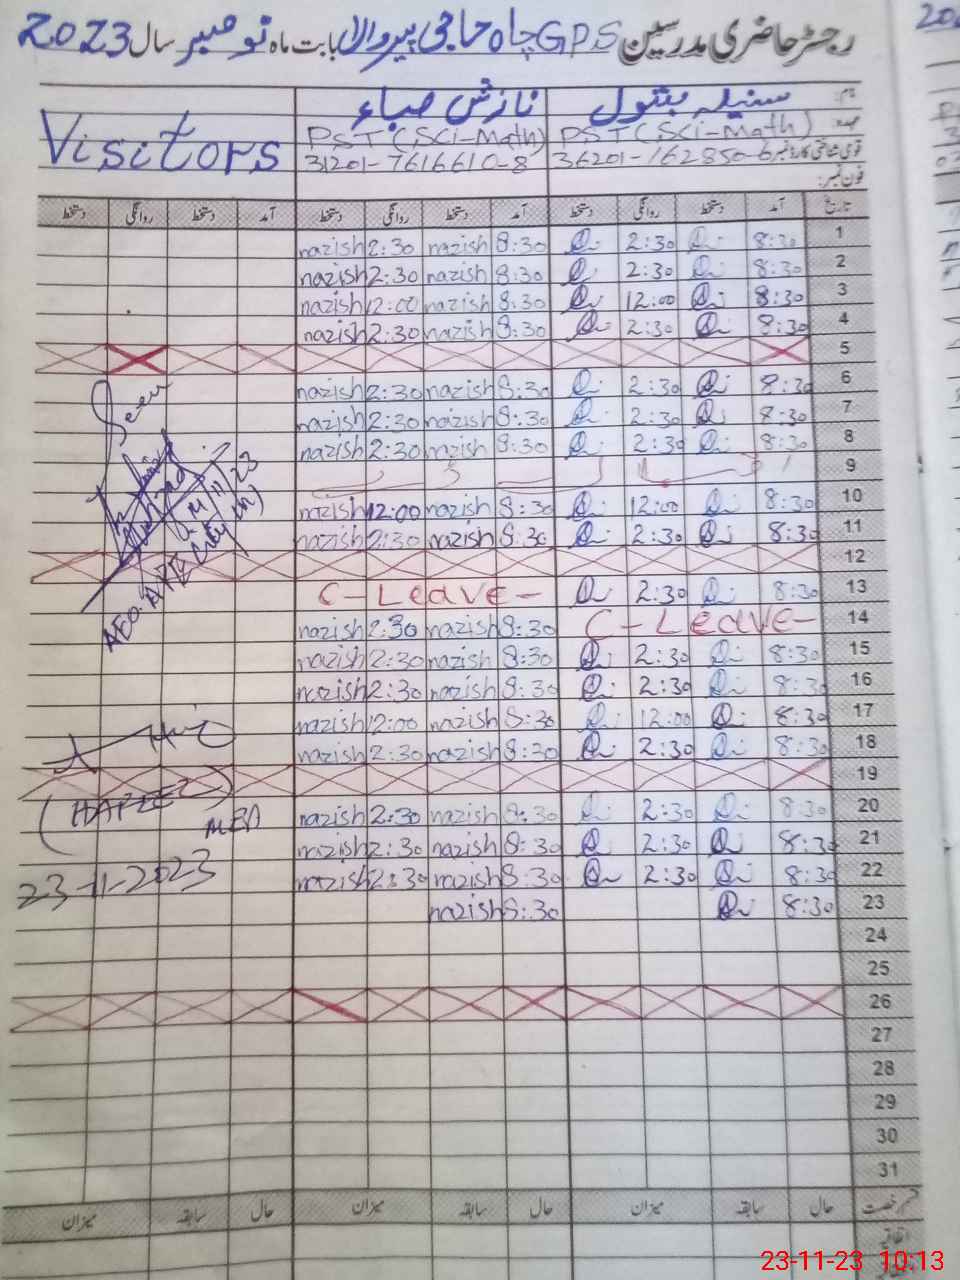 رجسٹر حاضری مدرسین GPS چاہ حاجی پیر والا بابت ماہ نومبر سال 2023
نام: سنیلہ بتول نازش صباء Visitors
عہدہ: PST (Sci-Math) PST (Sci-Math)
قومی شناختی کارڈ نمبر 36201-162850-6 31201-7616610-8
فون نمبر:
تاریخ آمد دستخط روانگی دستخط آمد دستخط روانگی دستخط آمد دستخط روانگی دستخط
1 8:30 2:30 8:30 nazish 2:30 nazish
2 8:30 2:30 8:30 nazish 2:30 nazish
3 8:30 12:00 8:30 nazish 12:00 nazish
4 8:30 2:30 8:30 nazish 2:30 nazish
5
6 8:30 2:30 8:30 nazish 2:30 nazish
7 8:30 2:30 8:30 nazish 2:30 nazish
8 8:30 2:30 8:30 nazish 2:30 nazish
9
10 8:30 12:00 8:30 nazish 12:00 nazish
11 8:30 2:30 8:30 nazish 2:30 nazish
12
13 8:30 2:30 C-Leave-
14 C-Leave- 8:30 nazish 2:30 nazish
15 8:30 2:30 8:30 nazish 2:30 nazish
16 8:30 2:30 8:30 nazish 2:30 nazish
17 8:30 12:00 8:30 nazish 12:00 nazish
18 8:30 2:30 8:30 nazish 2:30 nazish
19
20 8:30 2:30 8:30 nazish 2:30 nazish
21 8:30 2:30 8:30 nazish 2:30 nazish
22 8:30 2:30 8:30 nazish 2:30 nazish
23 8:30 8:30 nazish
24
25
26
27
28
29
30
31
Seen
AEO
MEA
23-11-2023
قسم رخصت حال سابقہ میزان حال سابقہ میزان حال سابقہ میزان
اتفاقیہ
23-11-23 10:13